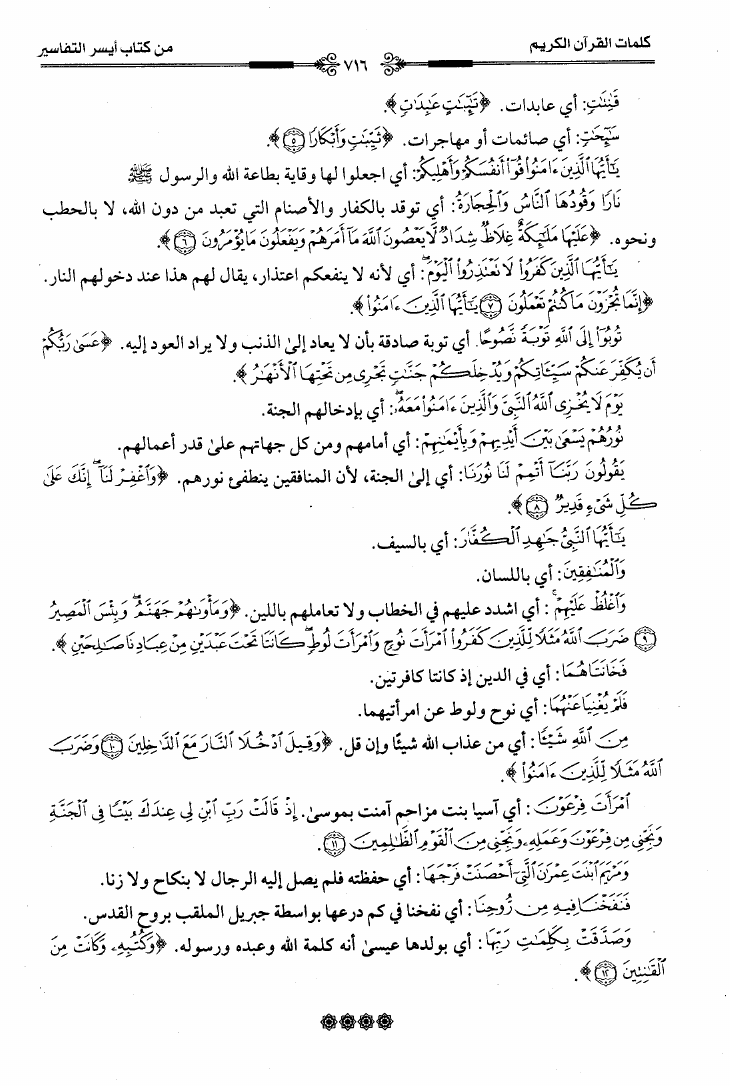 كلمات القرآن الكريم
٧١٦
من كتاب أيسر التفاسير
قَٰنِتَٰتٍ: أي عابدات. ﴿تَٰٓئِبَٰتٍ عَٰبِدَٰتٍ﴾.
سَٰٓئِحَٰتٍ: أي صائمات أو مهاجرات. ﴿ثَيِّبَٰتٍ وَأَبْكَارًا ٥﴾.
يَٰٓأَيُّهَا ٱلَّذِينَ ءَامَنُوا۟ قُوٓا۟ أَنفُسَكُمْ وَأَهْلِيكُمْ: أي اجعلوا لها وقاية بطاعة الله والرسول ﷺ
نَارًا وَقُودُهَا ٱلنَّاسُ وَٱلْحِجَارَةُ: أي توقد بالكفار والأصنام التي تعبد من دون الله، لا بالحطب
ونحوه. ﴿عَلَيْهَا مَلَٰٓئِكَةٌ غِلَاظٌ شِدَادٌ لَّا يَعْصُونَ ٱللَّهَ مَآ أَمَرَهُمْ وَيَفْعَلُونَ مَا يُؤْمَرُونَ ٦﴾.
يَٰٓأَيُّهَا ٱلَّذِينَ كَفَرُوا۟ لَا تَعْتَذِرُوا۟ ٱلْيَوْمَ: أي لأنه لا ينفعكم اعتذار، يقال لهم هذا عند دخولهم النار.
﴿إِنَّمَا تُجْزَوْنَ مَا كُنتُمْ تَعْمَلُونَ ٧ يَٰٓأَيُّهَا ٱلَّذِينَ ءَامَنُوا۟﴾.
تُوبُوٓا۟ إِلَى ٱللَّهِ تَوْبَةً نَّصُوحًا. أي توبة صادقة بأن لا يعاد إلىٰ الذنب ولا يراد العود إليه. ﴿عَسَىٰ رَبُّكُمْ
أَن يُكَفِّرَ عَنكُمْ سَيِّـَٔاتِكُمْ وَيُدْخِلَكُمْ جَنَّٰتٍ تَجْرِى مِن تَحْتِهَا ٱلْأَنْهَٰرُ﴾.
يَوْمَ لَا يُخْزِى ٱللَّهُ ٱلنَّبِىَّ وَٱلَّذِينَ ءَامَنُوا۟ مَعَهُۥ: أي بإدخالهم الجنة.
نُورُهُمْ يَسْعَىٰ بَيْنَ أَيْدِيهِمْ وَبِأَيْمَٰنِهِمْ: أي أمامهم ومن كل جهاتهم علىٰ قدر أعمالهم.
يَقُولُونَ رَبَّنَآ أَتْمِمْ لَنَا نُورَنَا: أي إلىٰ الجنة، لأن المنافقين ينطفئ نورهم. ﴿وَٱغْفِرْ لَنَآ إِنَّكَ عَلَىٰ
كُلِّ شَىْءٍ قَدِيرٌ ٨﴾.
يَٰٓأَيُّهَا ٱلنَّبِىُّ جَٰهِدِ ٱلْكُفَّارَ: أي بالسيف.
وَٱلْمُنَٰفِقِينَ: أي باللسان.
وَٱغْلُظْ عَلَيْهِمْ: أي اشدد عليهم في الخطاب ولا تعاملهم باللين. ﴿وَمَأْوَىٰهُمْ جَهَنَّمُ وَبِئْسَ ٱلْمَصِيرُ
٩ ضَرَبَ ٱللَّهُ مَثَلًا لِّلَّذِينَ كَفَرُوا۟ ٱمْرَأَتَ نُوحٍ وَٱمْرَأَتَ لُوطٍ كَانَتَا تَحْتَ عَبْدَيْنِ مِنْ عِبَادِنَا صَٰلِحَيْنِ﴾.
فَخَانَتَاهُمَا: أي في الدين إذ كانتا كافرتين.
فَلَمْ يُغْنِيَا عَنْهُمَا: أي نوح ولوط عن امرأتيهما.
مِنَ ٱللَّهِ شَيْـًٔا: أي من عذاب الله شيئًا وإن قل. ﴿وَقِيلَ ٱدْخُلَا ٱلنَّارَ مَعَ ٱلدَّٰخِلِينَ ١٠ وَضَرَبَ
ٱللَّهُ مَثَلًا لِّلَّذِينَ ءَامَنُوا۟﴾.
ٱمْرَأَتَ فِرْعَوْنَ: أي آسيا بنت مزاحم آمنت بموسىٰ. إِذْ قَالَتْ رَبِّ ٱبْنِ لِى عِندَكَ بَيْتًا فِى ٱلْجَنَّةِ
وَنَجِّنِى مِن فِرْعَوْنَ وَعَمَلِهِۦ وَنَجِّنِى مِنَ ٱلْقَوْمِ ٱلظَّٰلِمِينَ ١١﴾.
وَمَرْيَمَ ٱبْنَتَ عِمْرَٰنَ ٱلَّتِىٓ أَحْصَنَتْ فَرْجَهَا: أي حفظته فلم يصل إليه الرجال لا بنكاح ولا زنا.
فَنَفَخْنَا فِيهِ مِن رُّوحِنَا: أي نفخنا في كم درعها بواسطة جبريل الملقب بروح القدس.
وَصَدَّقَتْ بِكَلِمَٰتِ رَبِّهَا: أي بولدها عيسىٰ أنه كلمة الله وعبده ورسوله. ﴿وَكُتُبِهِۦ وَكَانَتْ مِنَ
ٱلْقَٰنِتِينَ ١٢﴾.